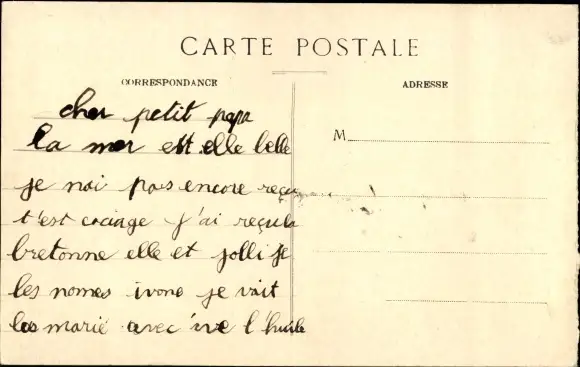 CARTE POSTALE
CORRESPONDANCE
ADRESSE
cher petit papa
la mer est elle belle
M
je nai pas encore reçu
t'est cociage j'ai reçula
bretonne elle et jolli je
les nomes ivone je vait
las marié avec ive l huile